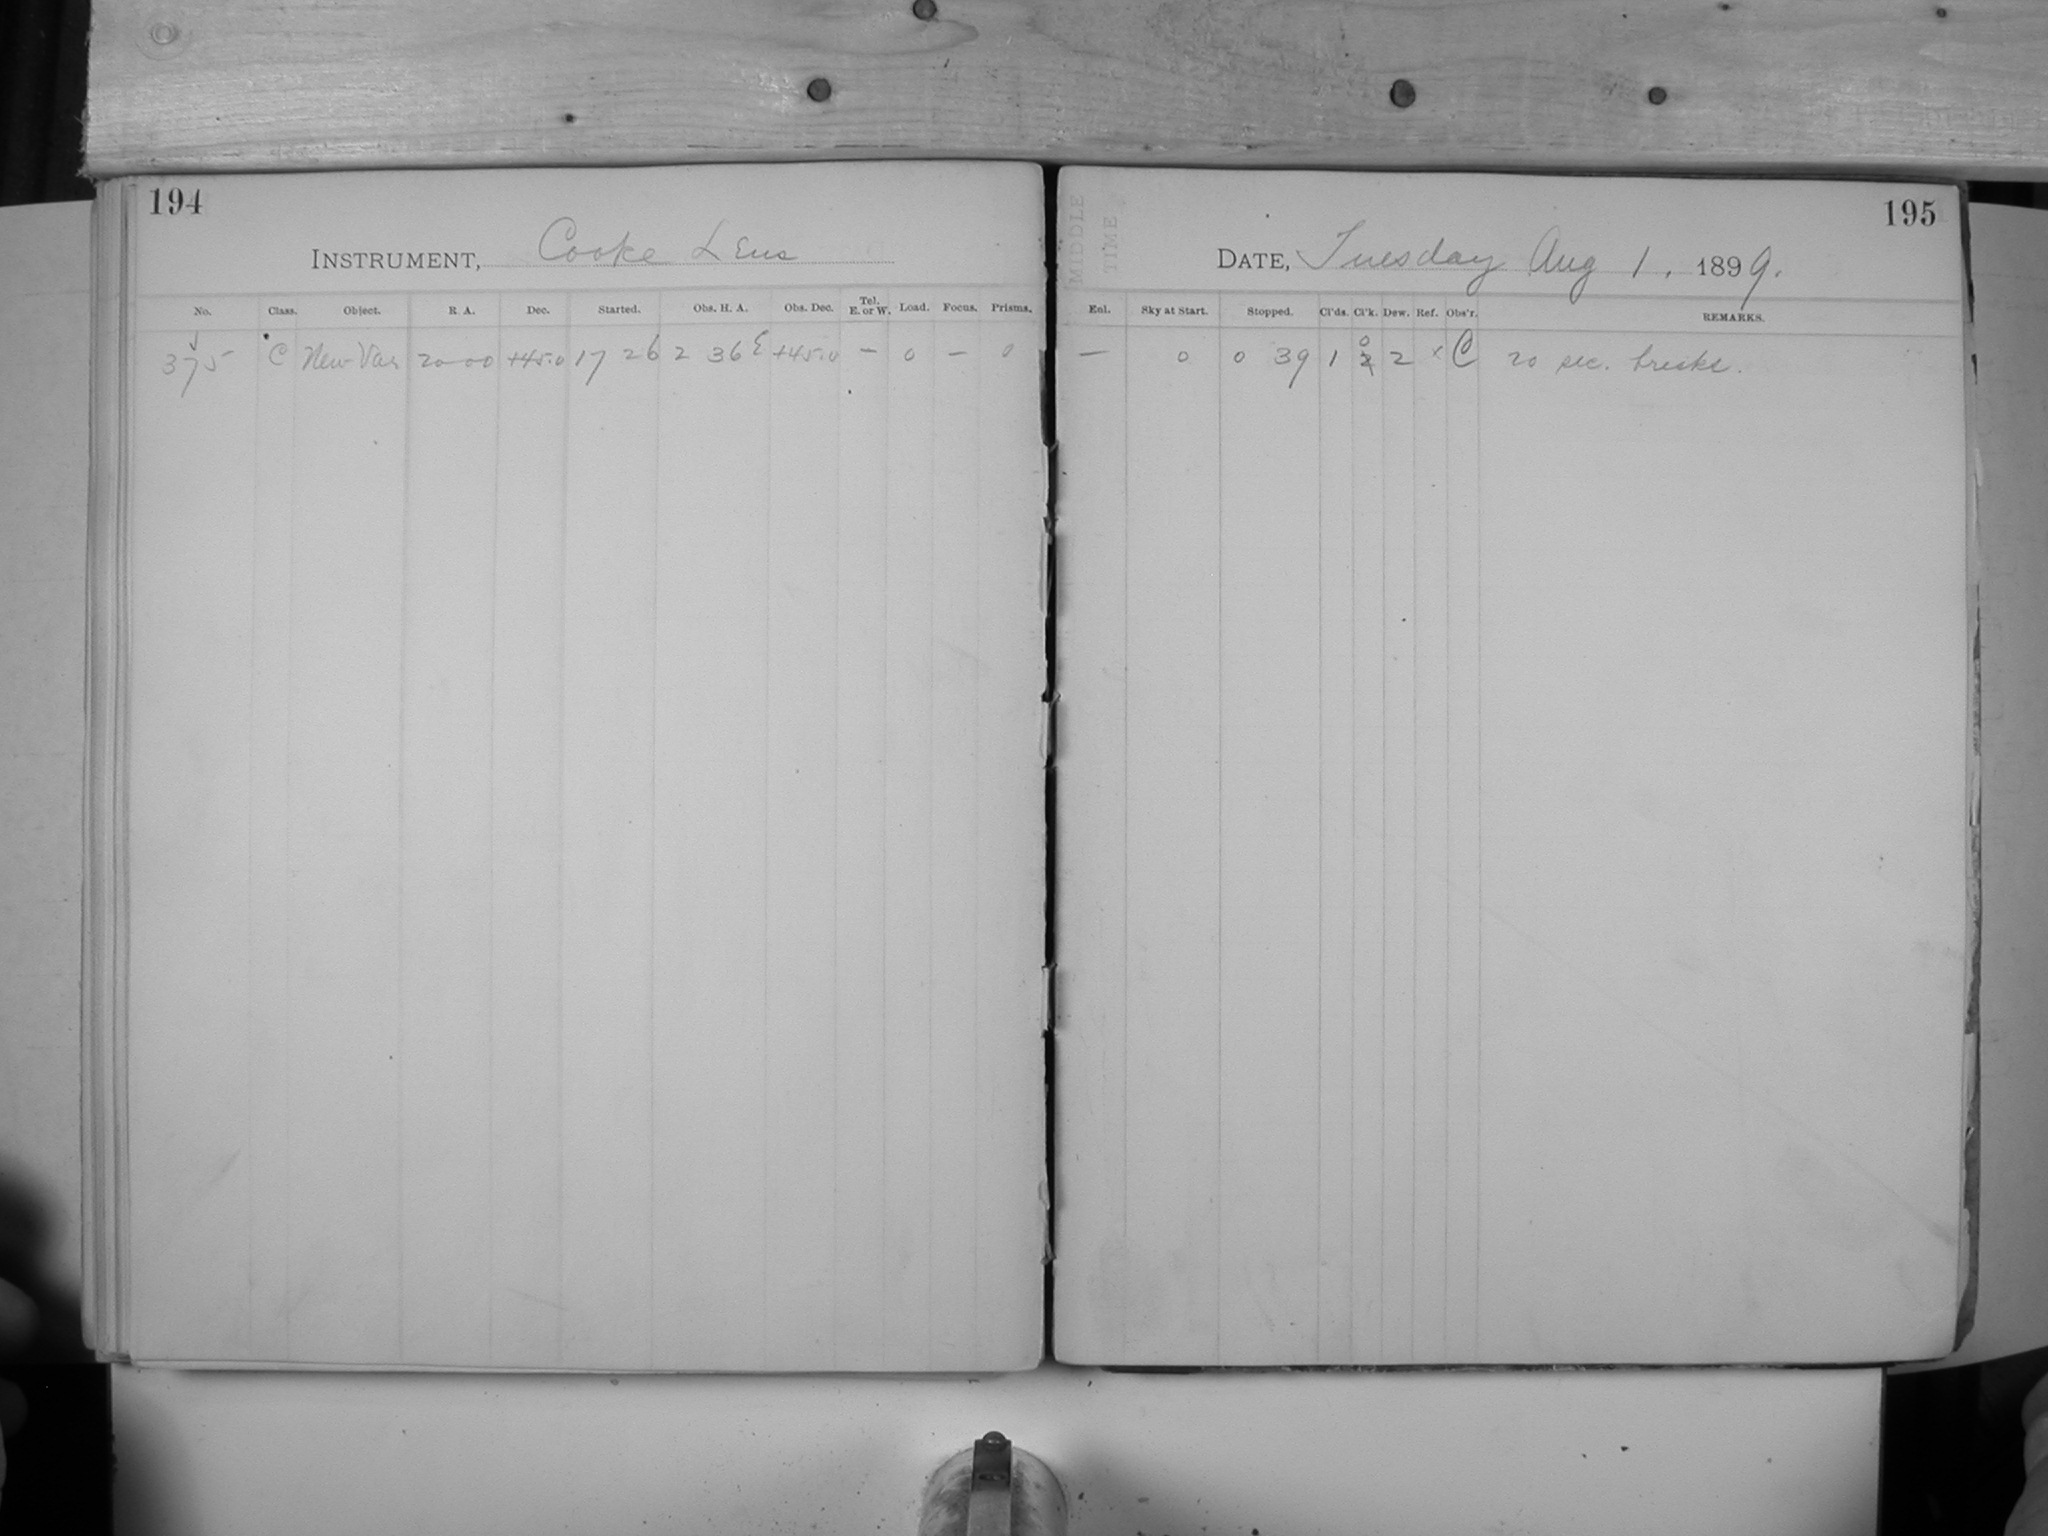 194
INSTRUMENT, Cooke Lens
No. Class. Object. R. A. Dec. Started. Obs. H. A. Obs. Dec. Tel. E. or W. Load. Focus. Prisms.
375 C New Var 20 00 +45.0 17 26 2 36 E +45.0 — 0 — 0
MIDDLE
TIME
195
DATE, Tuesday Aug 1, 1899.
Enl. Sky at Start. Stopped. Cl'ds. Cl'k. Dew. Ref. Obs'r. REMARKS.
— 0 0 39 1 0 2 2 x C 20 sec. breaks.